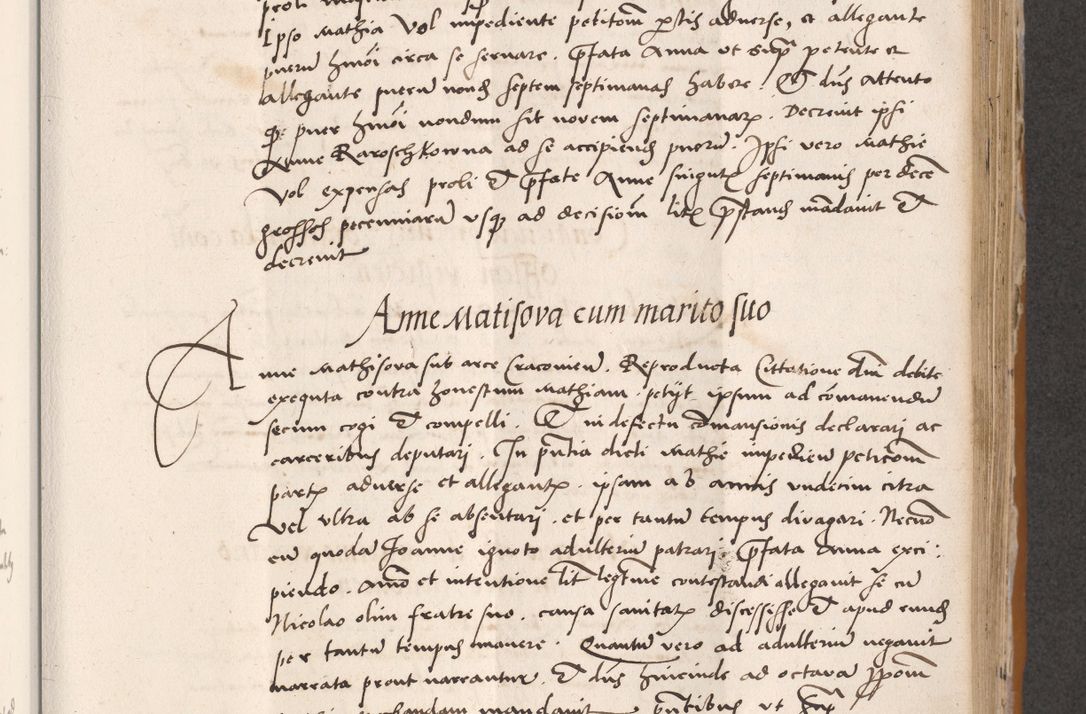 Ipso Mathia Vol impediente petitom partis adverse, et allegante
puerum hmoi circa se servare. prefata Anna ut supra petente et
allegante puerum nondum septem septimanas habere. Et dns Attento
quod puer hmoi nondum sit novem septimanarum. Decrevit ipsi
Anne Karoschkowna ad se accipiendum puerum. Ipsi vero Mathie
Vol expensas proli et prefate Anne singulis septimanis per decem
grosses pecuniarum usque ad decisiom litis prestandum mandavit et
decrevit
Anne Matisova cum marito suo
Anne Mathisova sub arce Cracovien. Reproducta Cittatione dum debite
exequta contra honestum Mathiam. petyt ipsum ad comanendum
secum cogi et compelli. Et in defectu comansionis declarari ac
carceribus deputari. In pntia dicti Mathie impedien peticom
partis adverse et allegantis. ipsam ab annis undecim citra
Vel ultra ab se absentari. et per tantum tempus divagari. Necno
cum quodam Joanne ignoto adulterium patrari. prefata Anna exci:
piendo. animo et intentione litem legitime contestandi allegavit se cum
Nicolao olim fratre suo. causa sanitatis discessisse et apud eundem
per tantum tempus manere. Quantum vero ad adulterium negavit
narrata prout narrantur. Et dns hincinde ad octavam propom
mandavit pntibus ut supra